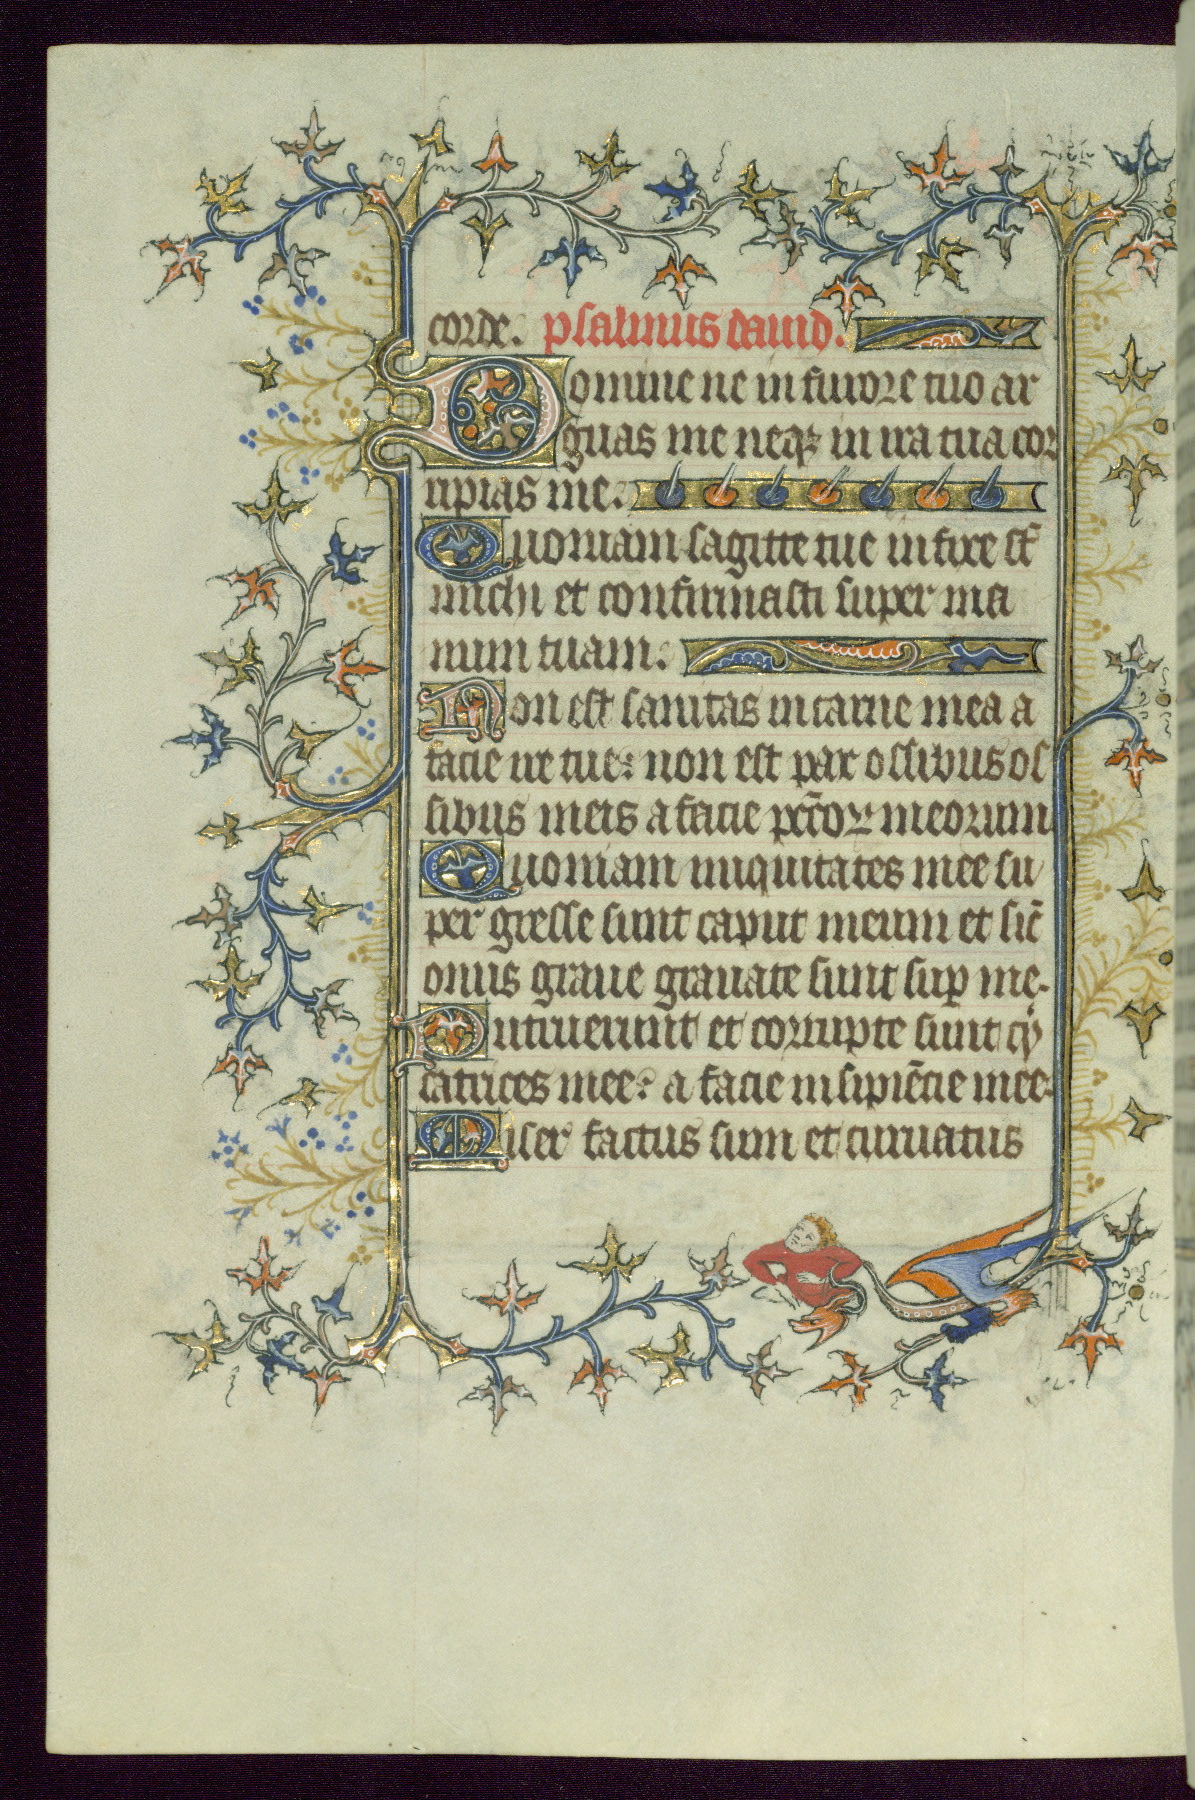 corde. psalmus dauid.
Domine ne in furore tuo ar
guas me neqꝫ in ira tua cor
ripias me.
Quoniam sagitte tue infixe st̄
michi et confirmasti super ma
num tuam.
Non est sanitas in carne mea a
facie ire tue: non est pax ossibus os
sibus meis a facie pctōꝝ meorum
Quoniam iniquitates mee su
per gresse sunt caput meum et sic̄
onus graue grauate sunt suꝑ me.
Putruerunt et corrupte sunt cy
catrices mee: a facie insipiētie mee.
Miser factus sum et curuatus